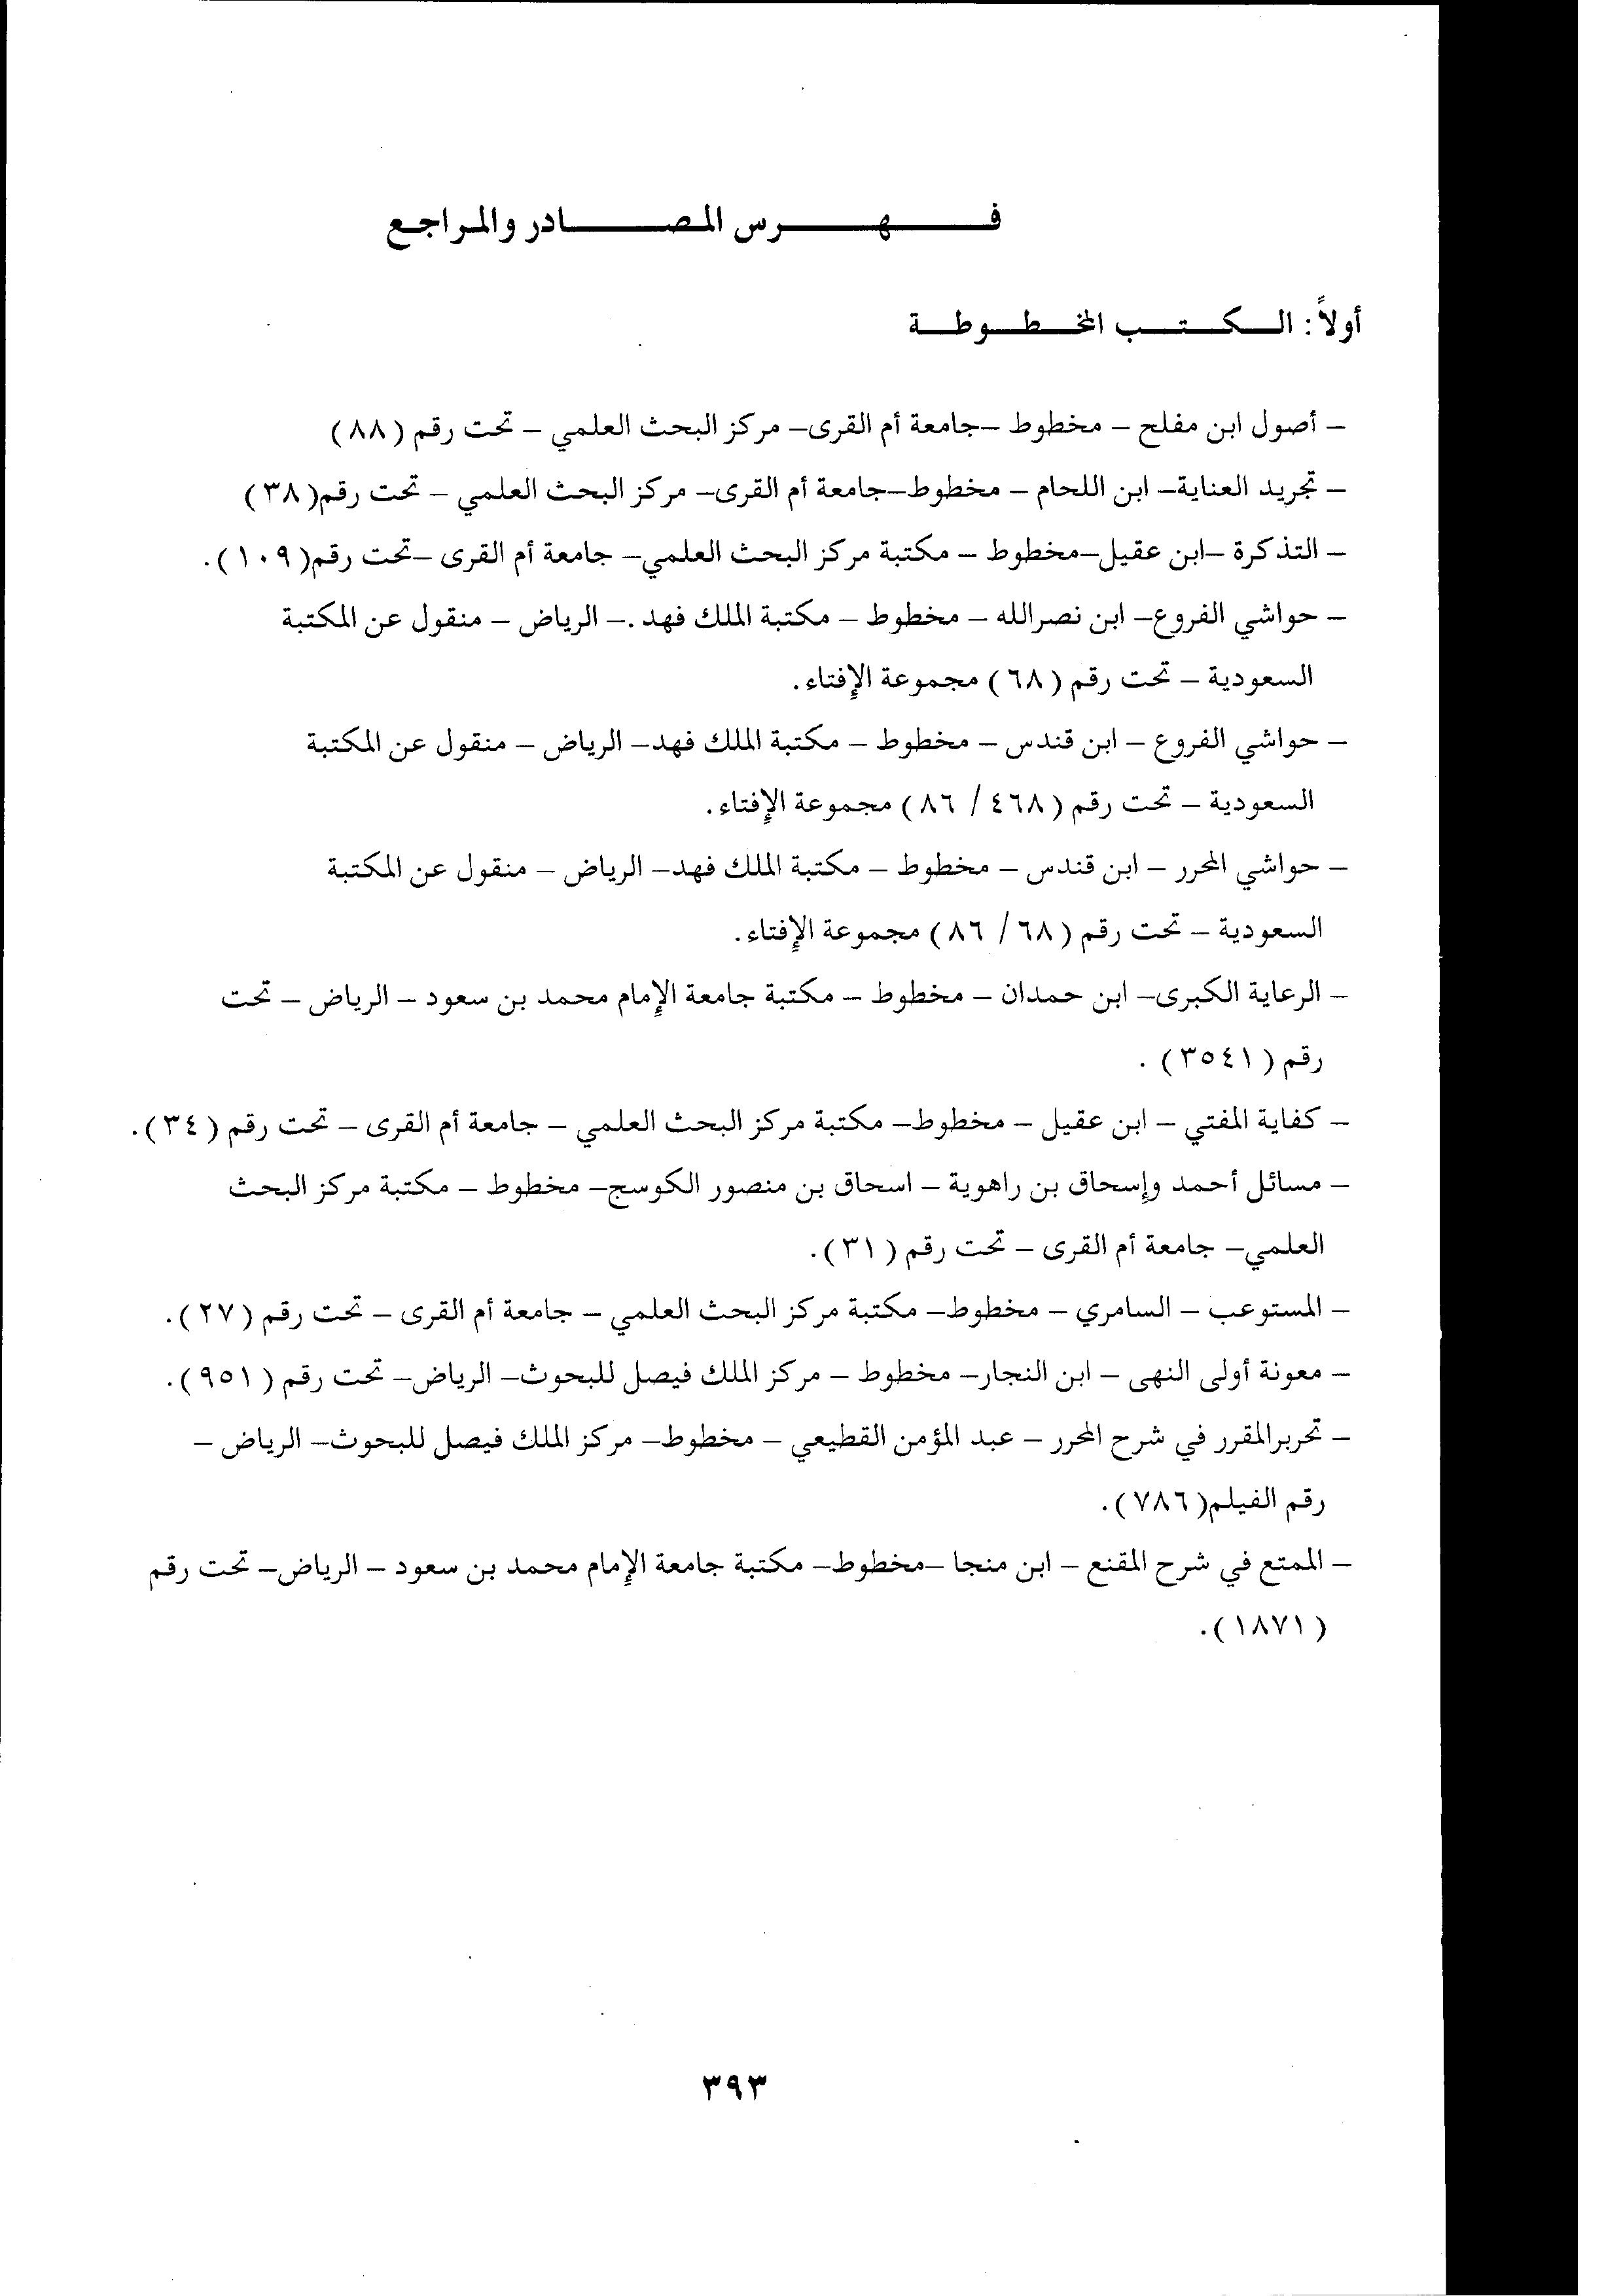 فهرس المصادر والمراجع
أولاً: الكتب المخطوطة
– أصول ابن مفلح – مخطوط –جامعة أم القرى– مركز البحث العلمي – تحت رقم (٨٨)
– تجريد العناية– ابن اللحام – مخطوط–جامعة أم القرى– مركز البحث العلمي – تحت رقم(٣٨)
– التذكرة –ابن عقيل–مخطوط – مكتبة مركز البحث العلمي– جامعة أم القرى –تحت رقم(١٠٩).
– حواشي الفروع– ابن نصرالله – مخطوط – مكتبة الملك فهد .– الرياض – منقول عن المكتبة
السعودية – تحت رقم (٦٨) مجموعة الإفتاء.
– حواشي الفروع – ابن قندس – مخطوط – مكتبة الملك فهد– الرياض – منقول عن المكتبة
السعودية – تحت رقم (٤٦٨ / ٨٦) مجموعة الإفتاء.
– حواشي المحرر – ابن قندس – مخطوط – مكتبة الملك فهد– الرياض – منقول عن المكتبة
السعودية – تحت رقم (٦٨ / ٨٦) مجموعة الإفتاء.
– الرعاية الكبرى– ابن حمدان – مخطوط – مكتبة جامعة الإمام محمد بن سعود – الرياض – تحت
رقم (٣٥٤١) .
– كفاية المفتي – ابن عقيل – مخطوط– مكتبة مركز البحث العلمي – جامعة أم القرى – تحت رقم (٣٤).
– مسائل أحمد وإسحاق بن راهوية – اسحاق بن منصور الكوسج– مخطوط – مكتبة مركز البحث
العلمي– جامعة أم القرى – تحت رقم (٣١).
– المستوعب – السامري – مخطوط– مكتبة مركز البحث العلمي – جامعة أم القرى – تحت رقم (٢٧).
– معونة أولى النهى – ابن النجار– مخطوط – مركز الملك فيصل للبحوث– الرياض– تحت رقم (٩٥١).
– تحريرالمقرر في شرح المحرر – عبد المؤمن القطيعي – مخطوط– مركز الملك فيصل للبحوث– الرياض –
رقم الفيلم(٧٨٦).
– الممتع في شرح المقنع – ابن منجا –مخطوط– مكتبة جامعة الإمام محمد بن سعود – الرياض– تحت رقم
(١٨٧١).
٣٩٣